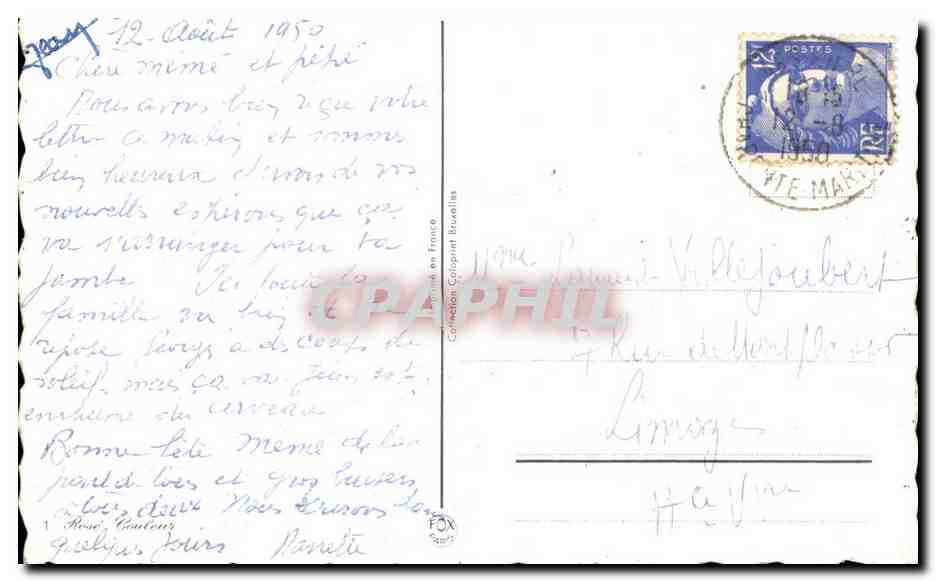 Jean
12 Août 1950
Chère mémé et pépé
Nous avons bien reçu votre
lettre ce matin et sommes
bien heureux d'avoir de vos
nouvelles espérons que ça
va s'arranger pour ta
jambe Ici toute la
famille va bien et
repose Georges a des coups de
soleil mais ça va Jean est
enrhumé du cerveau
Bonne fête mémé de la
part de tous et gros baisers
à tous deux Nous écrirons dans
quelques jours Pierrette
1 Rose Couleur
FOX
PARIS
Imprimé en France
Collection Coloprint Bruxelles
CPAPHIL
12F POSTES RF
12 -8
1950
CHTE-MARITIME
Mme Villejoubert
7 Rue de
Limoges
Hte Vne